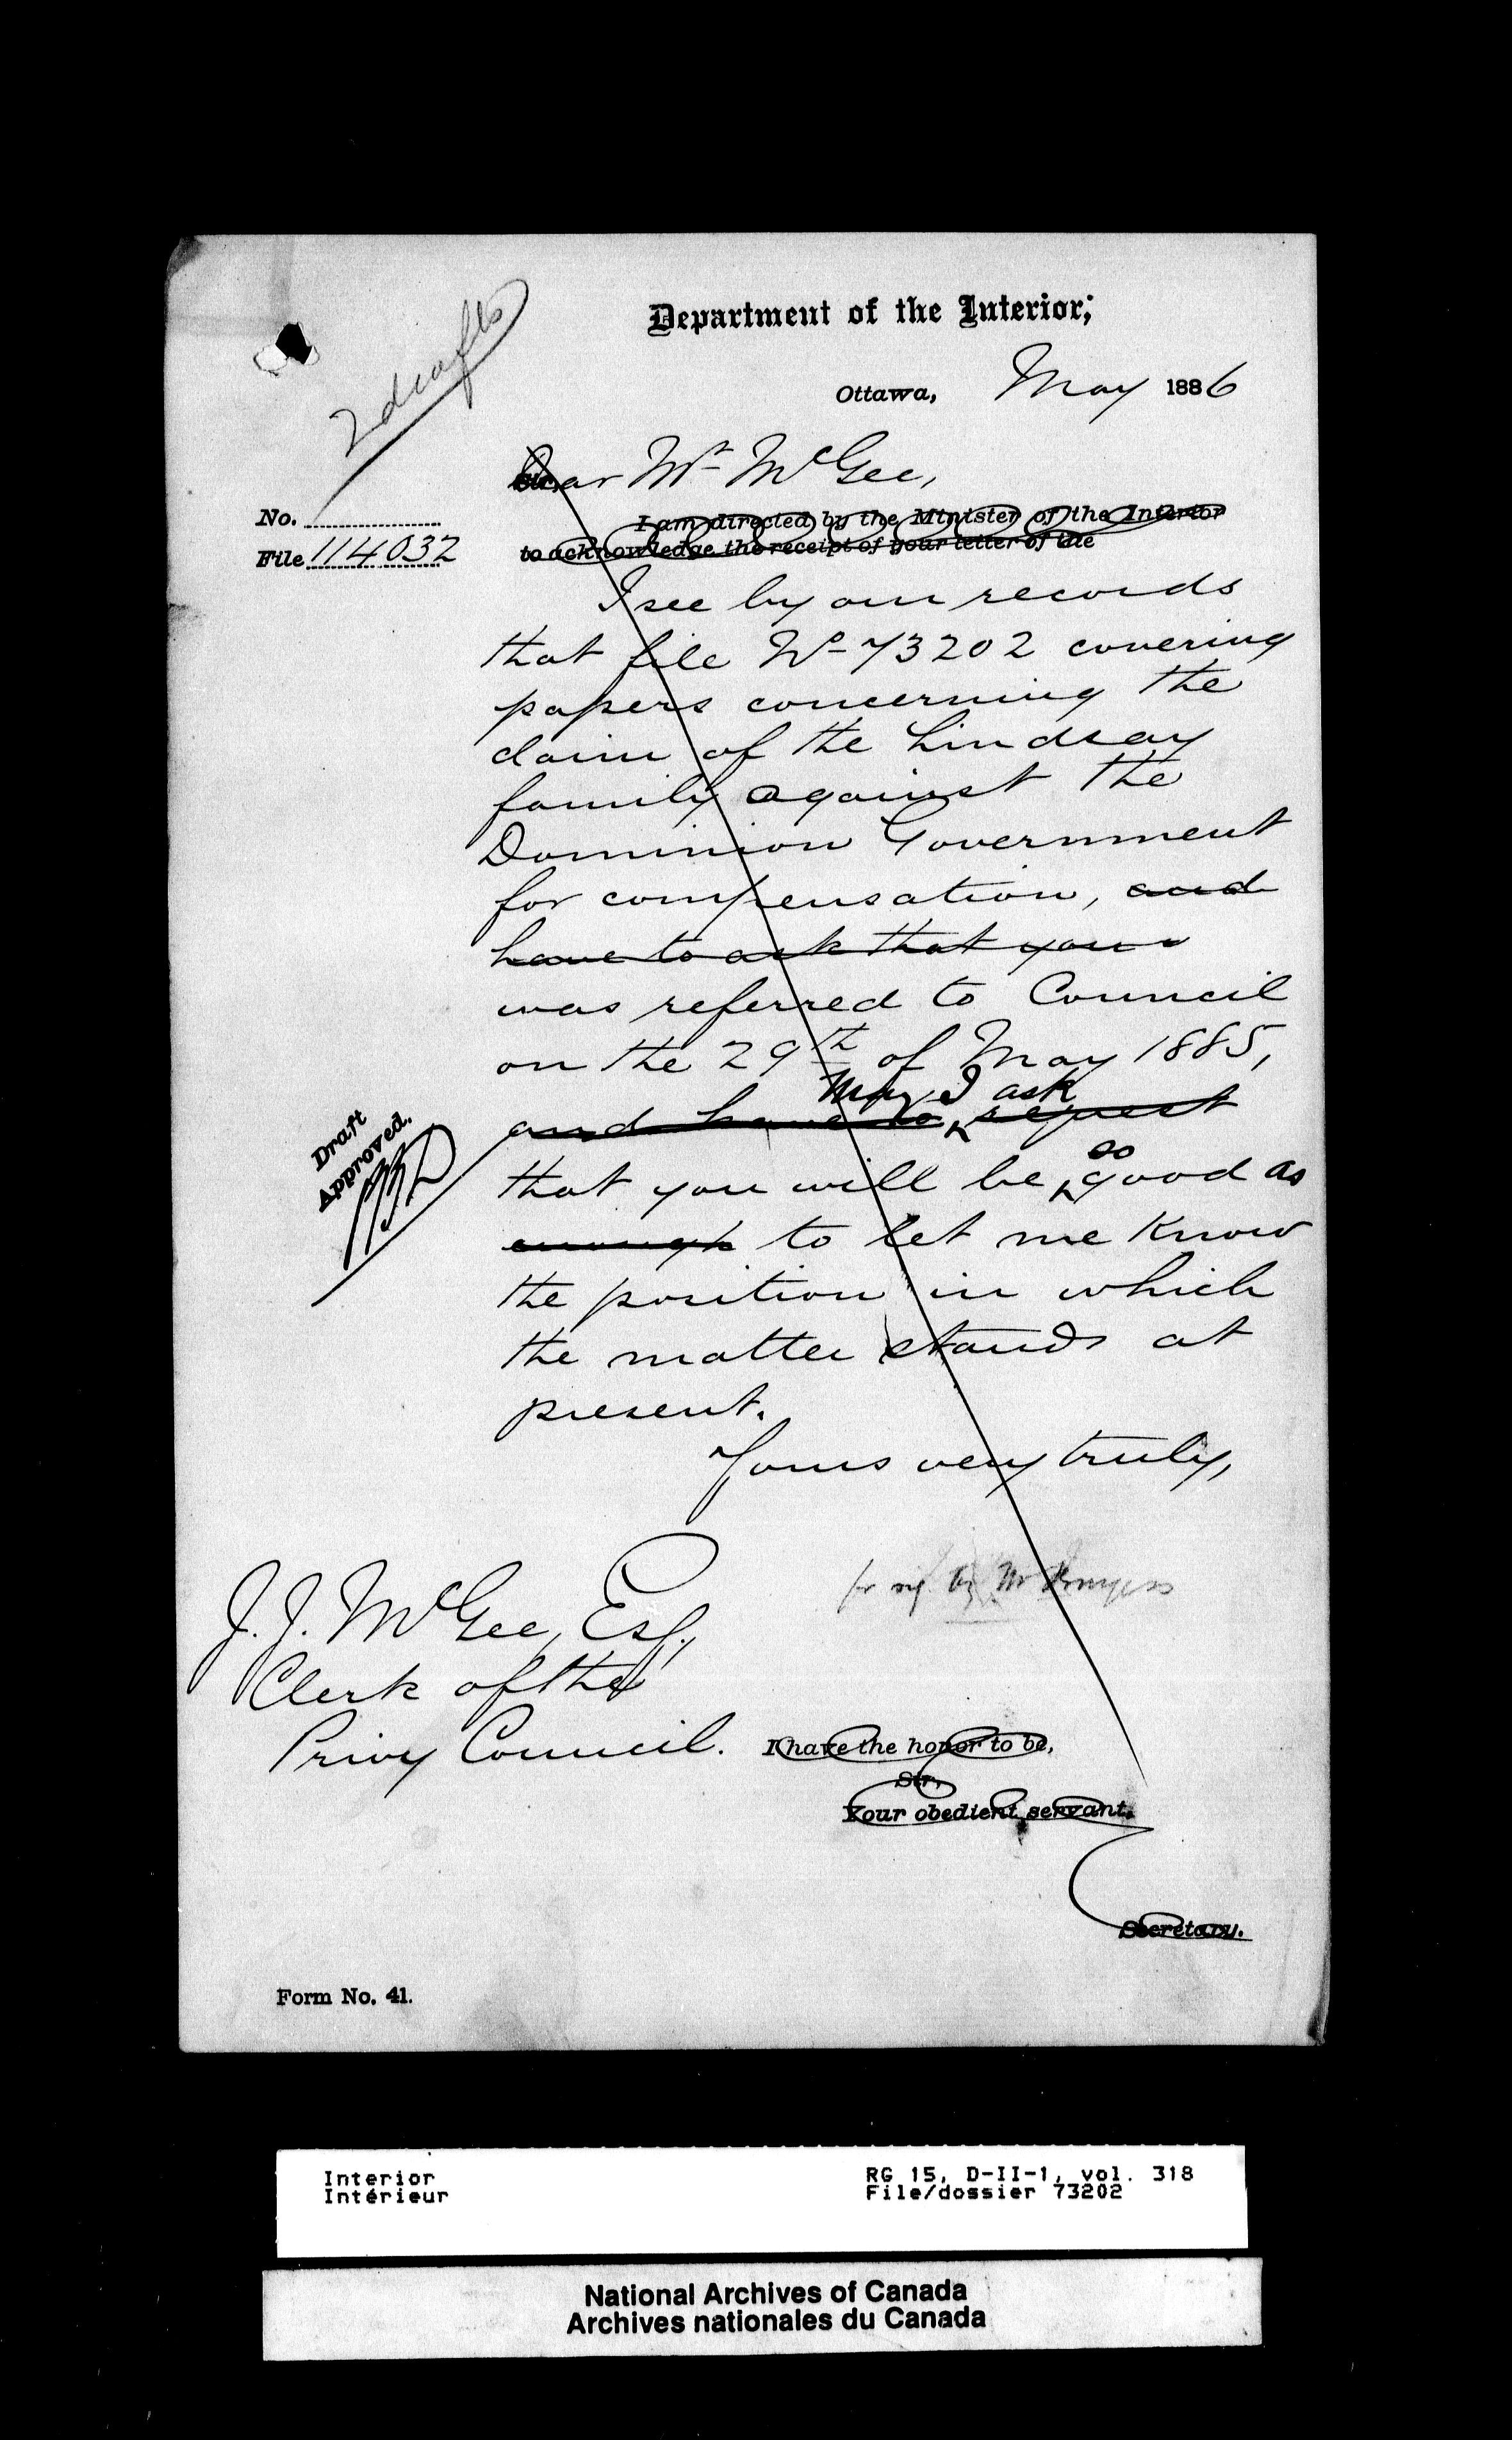 2 drafts
Department of the Interior,
Ottawa, May 1886
Dear Mr McGee,
No.
I am directed by the Minister of the Interior
File 114032
to acknowledge the receipt of your letter of the
I see by our records
that file No 73202 covering
papers concerning the
claim of the Lindsay
family against the
Dominion Government
for compensation, and
have to ask that you
was referred to Council
on the 29th of May 1885,
May I ask
and have to request
so
that you will be good as
enough to let me know
the position in which
the matter stands at
present.
Yours very truly,
Draft
Approved.
for sig. by Mr
J. J. McGee, Esq,
Clerk of the
Privy Council.
I have the honor to be,
Sir,
Your obedient servant.
Secretary.
Form No. 41.
Interior
Intérieur
RG 15, D-II-1, vol. 318
File/dossier 73202
National Archives of Canada
Archives nationales du Canada